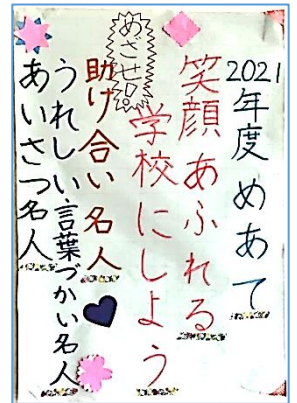 2021年度めあて
笑顔あふれる
学校にしよう
めざせ!
助け合い名人
うれしい言葉づかい名人
あいさつ名人